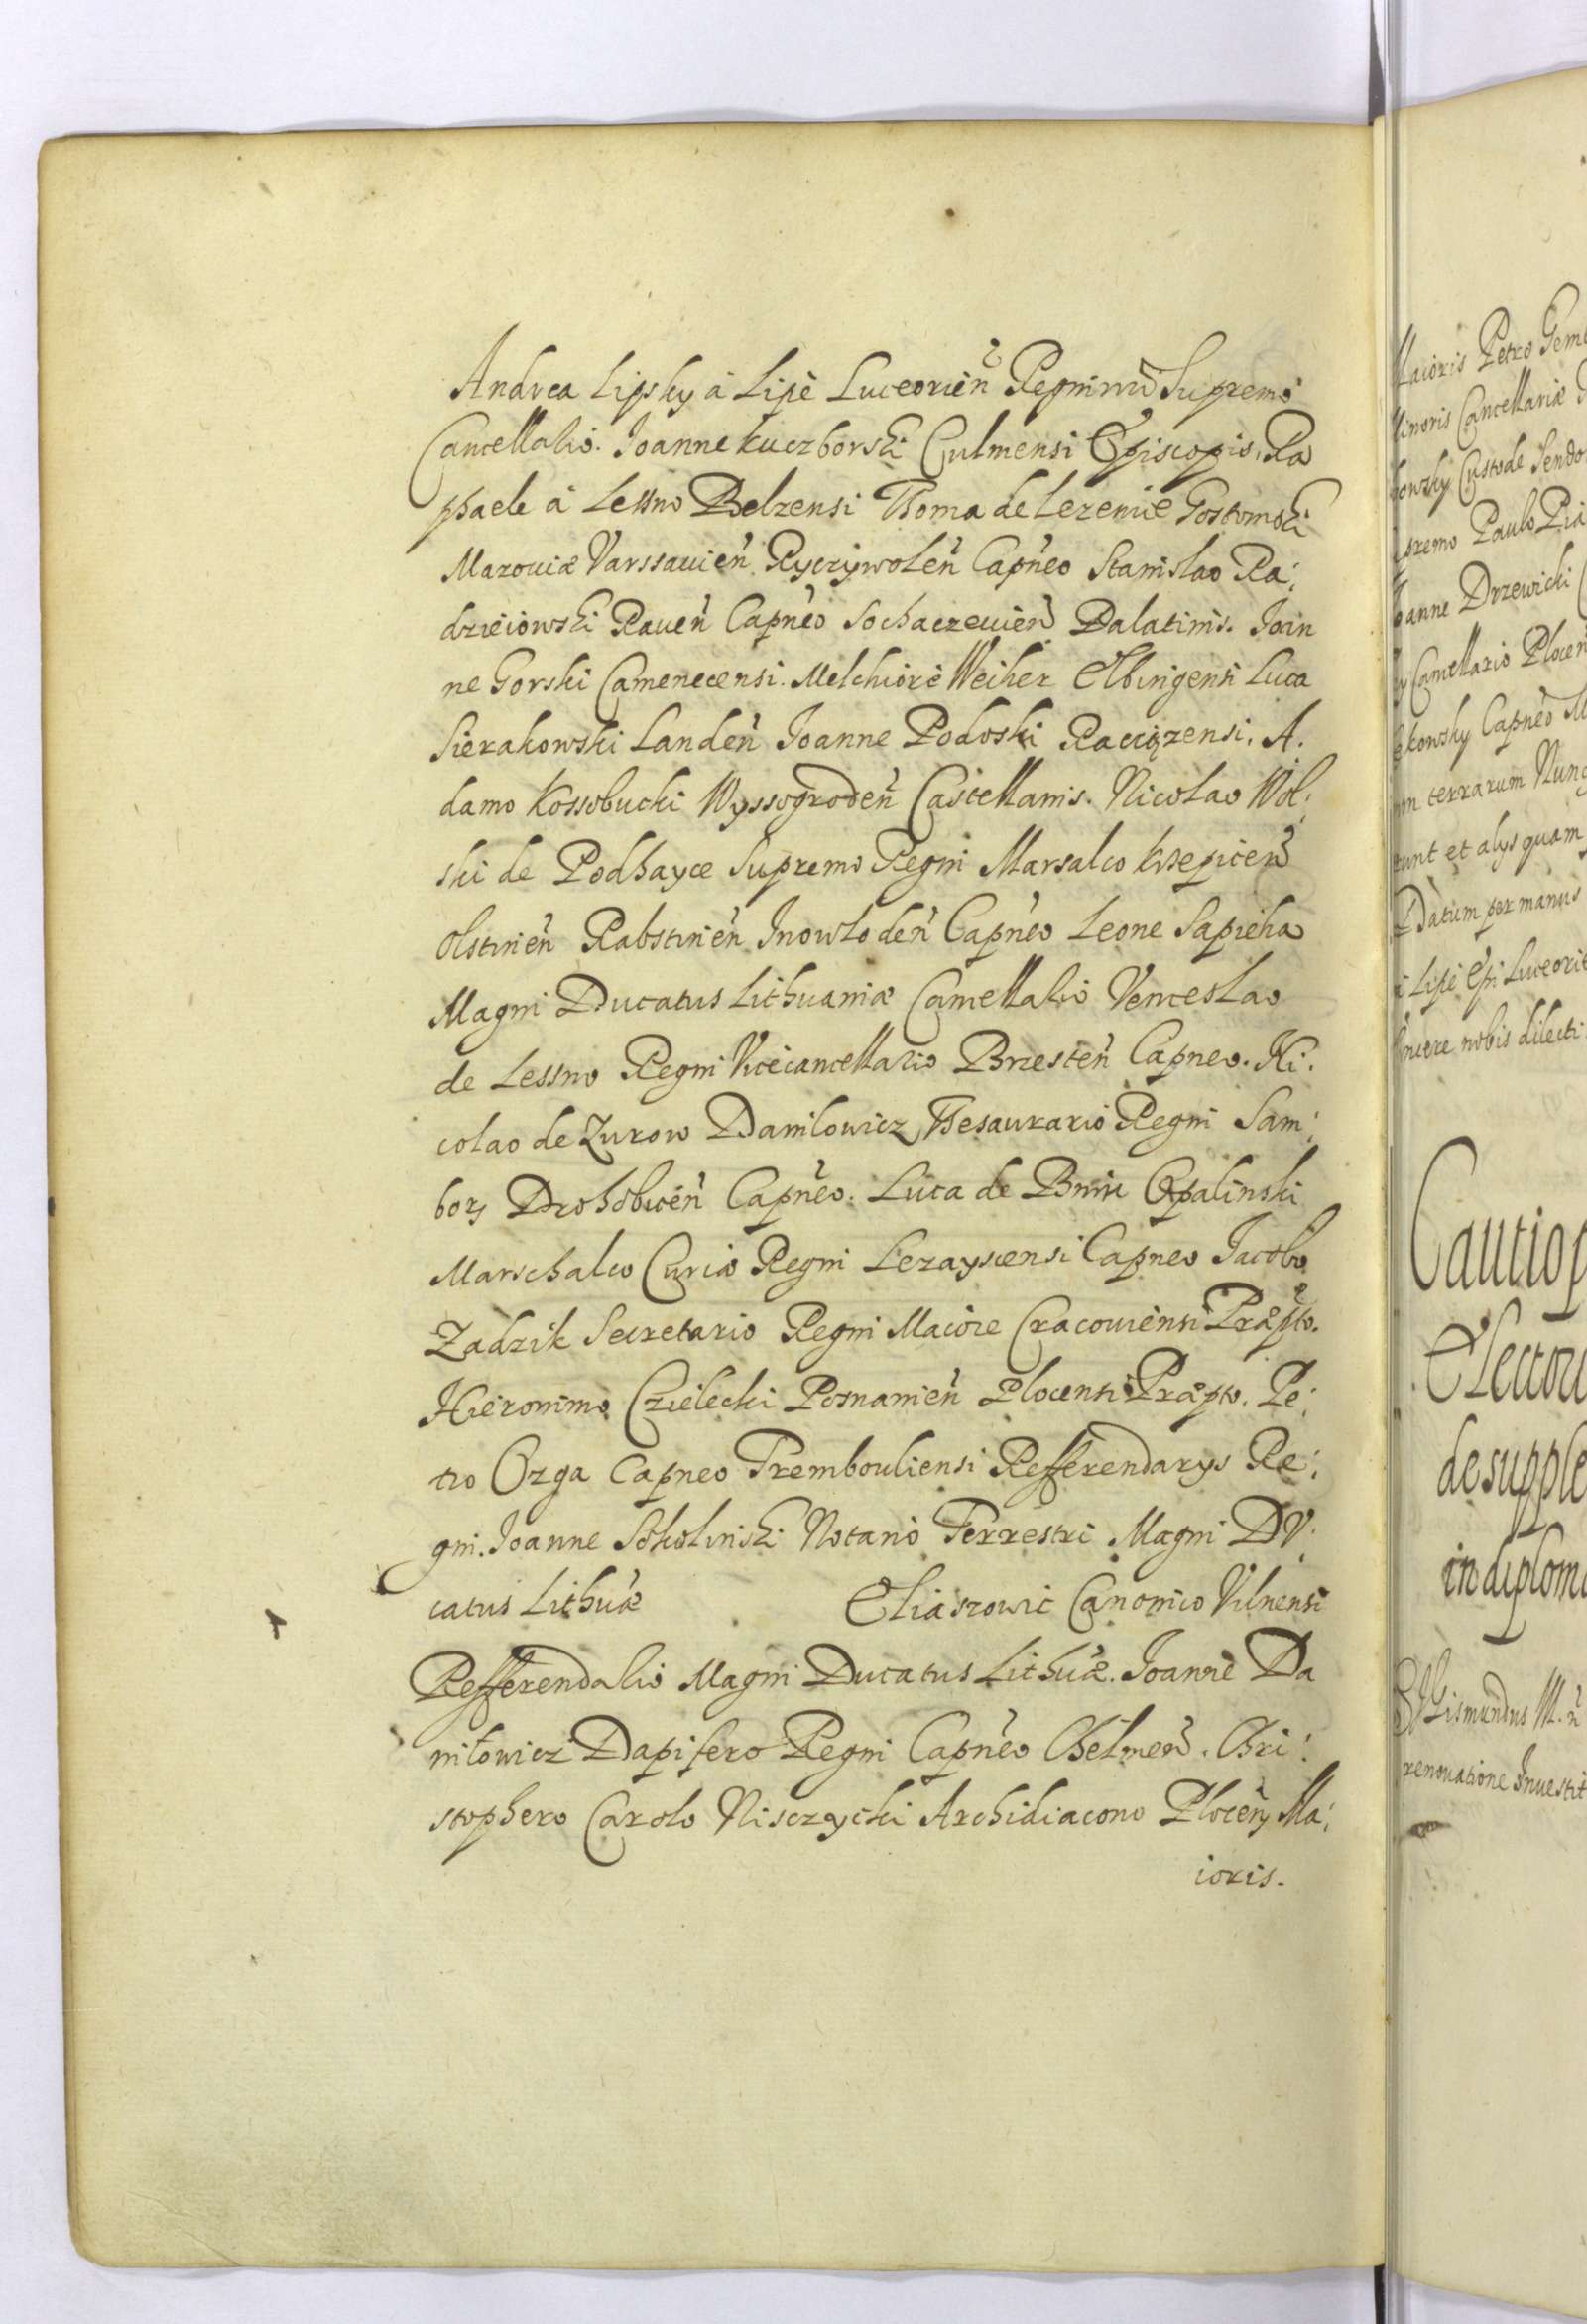 Andrea Lipsky à Lipè Luceorien̄ Regni nrī Supremo
Cancellario. Joanne Kuczborski Culmensi Episcopis, Ra
phaele à Lessno Belzensi Thoma de Lezenie Gostomski
Mazouiæ Varssauien̄ Ryczÿwolen̄ Capn̄eo Stanislao Ra:
dzieiowski Rauen̄ Capn̄eo Sochaczeuien̄ Palatinis. Joan
ne Gorski Camenecensi. Melchiore Weiher Elbingensi Luca
Sierakowski Landen̄ Joanne Podoski Raciązensi, A.
damo Kossobucki Wyssogroden̄ Castellanis. Nicolao Wol:
ski de Podhayce Supremo Regni Marsalco Krzepicen̄
Olstinien̄ Rabstinien̄ Inowloden̄ Capn̄eo Leone Sapieha
Magni Ducatus Lithuaniæ Cancellario Venceslao
de Lessno Regni Vicecancellario Brzesten̄ Capneo. Ni.
colao de Zurow Danilowicz Thesaurario Regni Sam:
borz Drohobicen̄ Capn̄eo. Luca de Bnin Opalinski
Marschalco Curiæ Regni Lezayscensi Capneo Jacobo
Zadzik Secretario Regni Maiore Cracouiensi Præpto.
Hieronimo Czielecki Posnanien̄ Plocensi Præpto. Pe:
tro Ozga Capneo Trembouliensi Refferendarys Re:
gni. Joanne Sokolinski Notario Terrestri Magni DV:
catus Lithuæ Eliaszowic Canonico Vilnensi
Refferendario Magni Ducatus Lithuæ. Joanne Da
niłowicz Dapifero Regni Capn̄eo Chelmen̄. Chri:
stophero Carolo Nisczycki Archidiacono Plocen̄ Ma:
ioris.
Maioris Petro Gem
Minoris Cancellariæ
Custode Sendo
Paulo Pia
Joanne Drzewicki
Cancellario Plocen̄
kowsky Capneo
terrarum Nunc
et alys quam
Datum per manus
à Lipè Epi Luceorie
nobis dilecti
Cautio
Electori
de supple
in diploma
Sigismundus
renouatione Inuestit